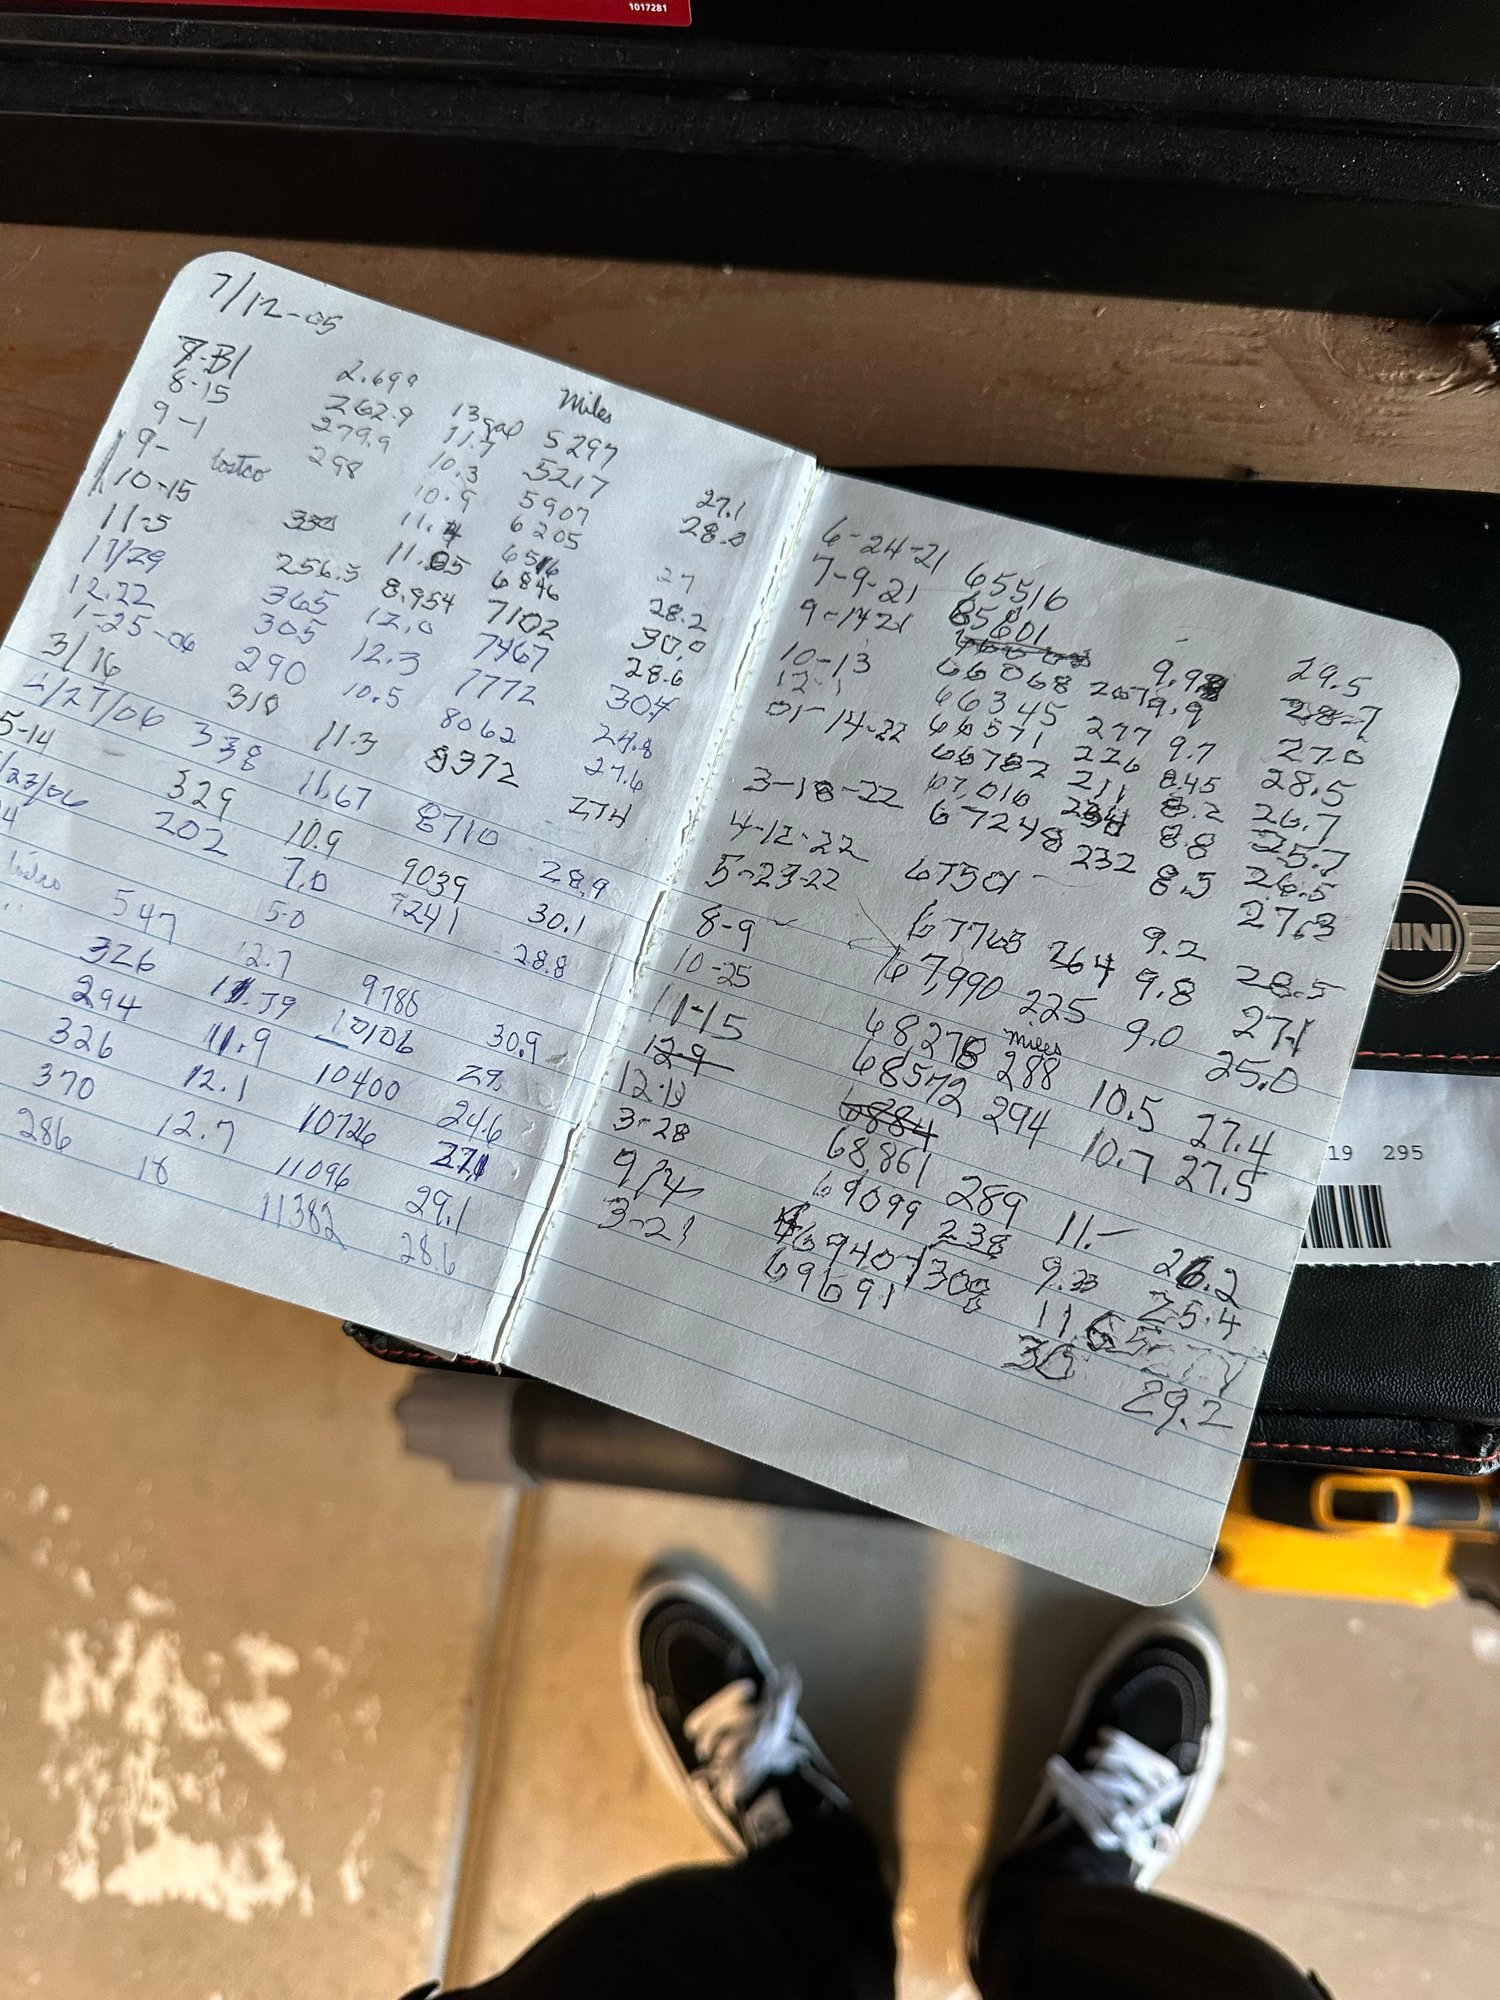 1017281
7/12-05
Miles
8-15 2.699 13 gal 5297
9-1 262.9 11.7 5217 27.1
9- 279.9 10.3 5907 28.0
10-15 Costco 298 10.9 6205 27
11-5 11.4 6516 28.2
11/29 11.85 6846 30.0
12.22 256.5 8.954 7102 28.6
1-25-06 365 12.0 7467 30.4
3/16 305 12.3 7772
290 10.5 8062 27.6
310 11.3 8372 27.4
4/27/06 338 11.67 8710 28.9
5-14 329 10.9 9039 30.1
/23/06 202 7.0 9241 28.8
547 5.0
12.7 9788 30.9
326 11.39 10106 29.
294 11.9 10400 24.6
326 12.1 10726 27.1
370 12.7 11096 29.1
286 10 11382 28.6
6-24-21 65516
7-9-21 65801 9.9 29.5
9-14-21 66068 267 9.9 28.7
10-13 66345 277 9.7 27.0
12-1 66571 226 8.45 28.5
01-14-22 66782 211 8.2 26.7
67,016 234 8.8 25.7
3-18-22 67248 232 8.5 26.5
4-12-22 67501 9.2 27.3
5-23-22 67765 264 9.8 28.5
67,990 225 9.0 27.1
25.0
8-9 68,278 288 miles 10.5 27.4
10-25 68572 294 10.7 27.5
11-15 6884
12-9 68861 289 11.- 26.2
12-10 69099 238 9.33 25.4
3-28 69407 308 11
9/4 69691 30 29.2
3-21
MINI
19 295